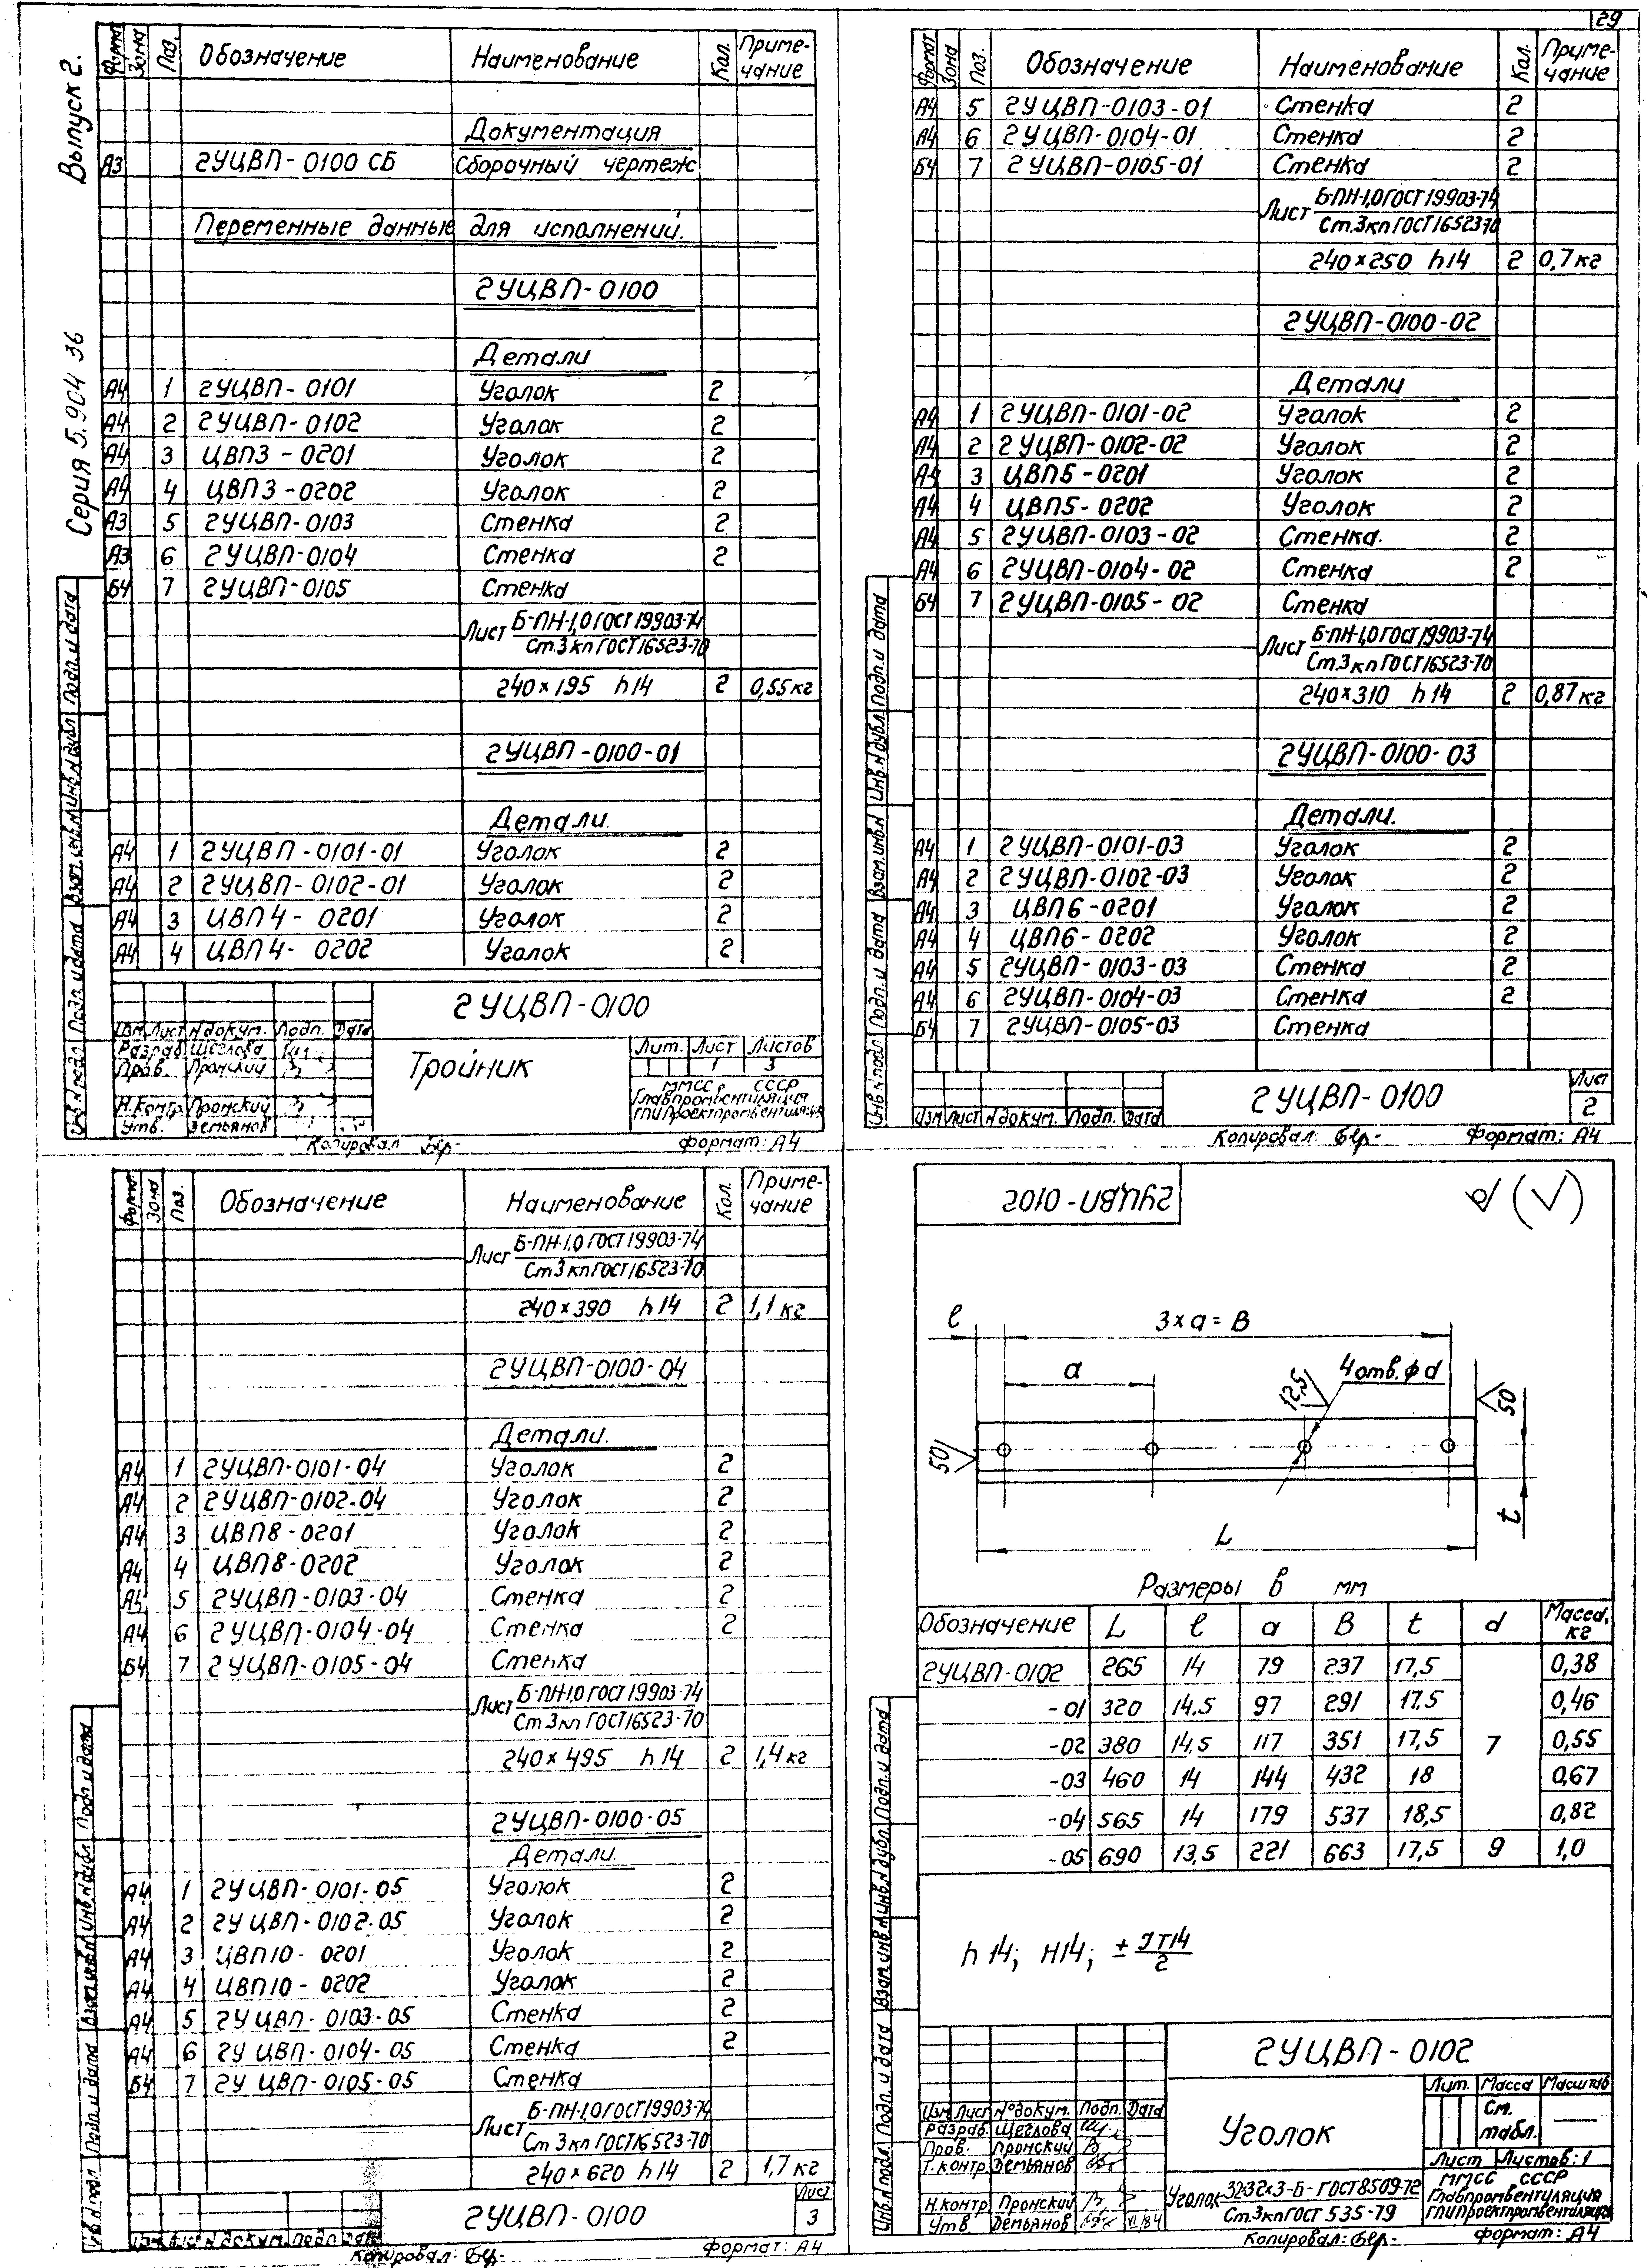 29
Выпуск 2.
Серия 5.904 36
Формат Зона Поз. Обозначение Наименование Кол. Приме-чание
Документация
А3 2УЦВП-0100 СБ Сборочный чертеж
Переменные данные для исполнений.
2УЦВП-0100
Детали
А4 1 2УЦВП-0101 Уголок 2
А4 2 2УЦВП-0102 Уголок 2
А4 3 ЦВП3-0201 Уголок 2
А4 4 ЦВП3-0202 Уголок 2
А3 5 2УЦВП-0103 Стенка 2
А3 6 2УЦВП-0104 Стенка 2
Б4 7 2УЦВП-0105 Стенка
Лист Б-ПН-1,0 ГОСТ 19903-74
Ст.3кп ГОСТ 16523-70
240×195 h14 2 0,55кг
2УЦВП-0100-01
Детали.
А4 1 2УЦВП-0101-01 Уголок 2
А4 2 2УЦВП-0102-01 Уголок 2
А4 3 ЦВП4-0201 Уголок 2
А4 4 ЦВП4-0202 Уголок 2
Инв.N подл. Подп. и дата Взам.инв.N Инв.N дубл. Подп. и дата
2УЦВП-0100
Изм. Лист N докум. Подп. Дата
Разраб. Щеглова
Пров. Пронский
Н.контр. Пронский
Утв. Демьянов
Тройник
Лит. Лист Листов
1 3
ММСС СССР
Главпромвентиляция
ГПИПроектпромвентиляция
Копировал Бер- Формат: А4
Формат Зона Поз. Обозначение Наименование Кол. Приме-чание
А4 5 2УЦВП-0103-01 Стенка 2
А4 6 2УЦВП-0104-01 Стенка 2
Б4 7 2УЦВП-0105-01 Стенка 2
Лист Б-ПН-1,0 ГОСТ 19903-74
Ст.3кп ГОСТ 16523-70
240×250 h14 2 0,7кг
2УЦВП-0100-02
Детали
А4 1 2УЦВП-0101-02 Уголок 2
А4 2 2УЦВП-0102-02 Уголок 2
А4 3 ЦВП5-0201 Уголок 2
А4 4 ЦВП5-0202 Уголок 2
А4 5 2УЦВП-0103-02 Стенка. 2
А4 6 2УЦВП-0104-02 Стенка 2
Б4 7 2УЦВП-0105-02 Стенка
Лист Б-ПН-1,0 ГОСТ 19903-74
Ст.3кп ГОСТ 16523-70
240×310 h14 2 0,87кг
2УЦВП-0100-03
Детали.
А4 1 2УЦВП-0101-03 Уголок 2
А4 2 2УЦВП-0102-03 Уголок 2
А4 3 ЦВП6-0201 Уголок 2
А4 4 ЦВП6-0202 Уголок 2
А4 5 2УЦВП-0103-03 Стенка 2
А4 6 2УЦВП-0104-03 Стенка 2
Б4 7 2УЦВП-0105-03 Стенка
Инв.N подл. Подп. и дата Взам.инв.N Инв.N дубл. Подп. и дата
Изм Лист N докум. Подп. Дата
2УЦВП-0100
Лист
2
Копировал: Бер- Формат: А4
Формат Зона Поз. Обозначение Наименование Кол. Приме-чание
Лист Б-ПН-1,0 ГОСТ 19903-74
Ст3кп ГОСТ 16523-70
240×390 h14 2 1,1кг
2УЦВП-0100-04
Детали.
А4 1 2УЦВП-0101-04 Уголок 2
А4 2 2УЦВП-0102-04 Уголок 2
А4 3 ЦВП8-0201 Уголок 2
А4 4 ЦВП8-0202 Уголок 2
А4 5 2УЦВП-0103-04 Стенка 2
А4 6 2УЦВП-0104-04 Стенка 2
Б4 7 2УЦВП-0105-04 Стенка
Лист Б-ПН-1,0 ГОСТ 19903-74
Ст3кп ГОСТ 16523-70
240×495 h14 2 1,4кг
2УЦВП-0100-05
Детали.
А4 1 2УЦВП-0101-05 Уголок 2
А4 2 2УЦВП-0102-05 Уголок 2
А4 3 ЦВП10-0201 Уголок 2
А4 4 ЦВП10-0202 Уголок 2
А4 5 2УЦВП-0103-05 Стенка 2
А4 6 2УЦВП-0104-05 Стенка 2
Б4 7 2УЦВП-0105-05 Стенка
Лист Б-ПН-1,0 ГОСТ 19903-74
Ст3кп ГОСТ 16523-70
240×620 h14 2 1,7кг
Инв.N подл. Подп. и дата Взам.инв.N Инв.N дубл. Подп. и дата
Изм Лист N докум. Подп. Дата
2УЦВП-0100
Лист
3
Копировал: Бер- Формат: А4
2УЦВП-0102
l
3×a=B
a
12,5
4 отв. ⌀ d
50
50
t
L
Размеры в мм
Обозначение L l a B t d Масса, кг
2УЦВП-0102 265 14 79 237 17,5 0,38
-01 320 14,5 97 291 17,5 0,46
-02 380 14,5 117 351 17,5 7 0,55
-03 460 14 144 432 18 0,67
-04 565 14 179 537 18,5 0,82
-05 690 13,5 221 663 17,5 9 1,0
h14; H14; ± IT14/2
Инв.N подл. Подп. и дата Взам.инв.N Инв.N дубл. Подп. и дата
2УЦВП-0102
Изм Лист N°докум. Подп. Дата
Разраб. Щеглова
Пров. Пронский
Т.контр. Демьянов
Н.контр. Пронский
Утв Демьянов VI/84
Уголок
Лит. Масса Масштаб
См. табл.
Лист Листов: 1
Уголок 32×32×3-Б-ГОСТ 8509-72
Ст.3кп ГОСТ 535-79
ММСС СССР
Главпромвентиляция
ГПИПроектпромвентиляция
Копировал: Бер- Формат: А4